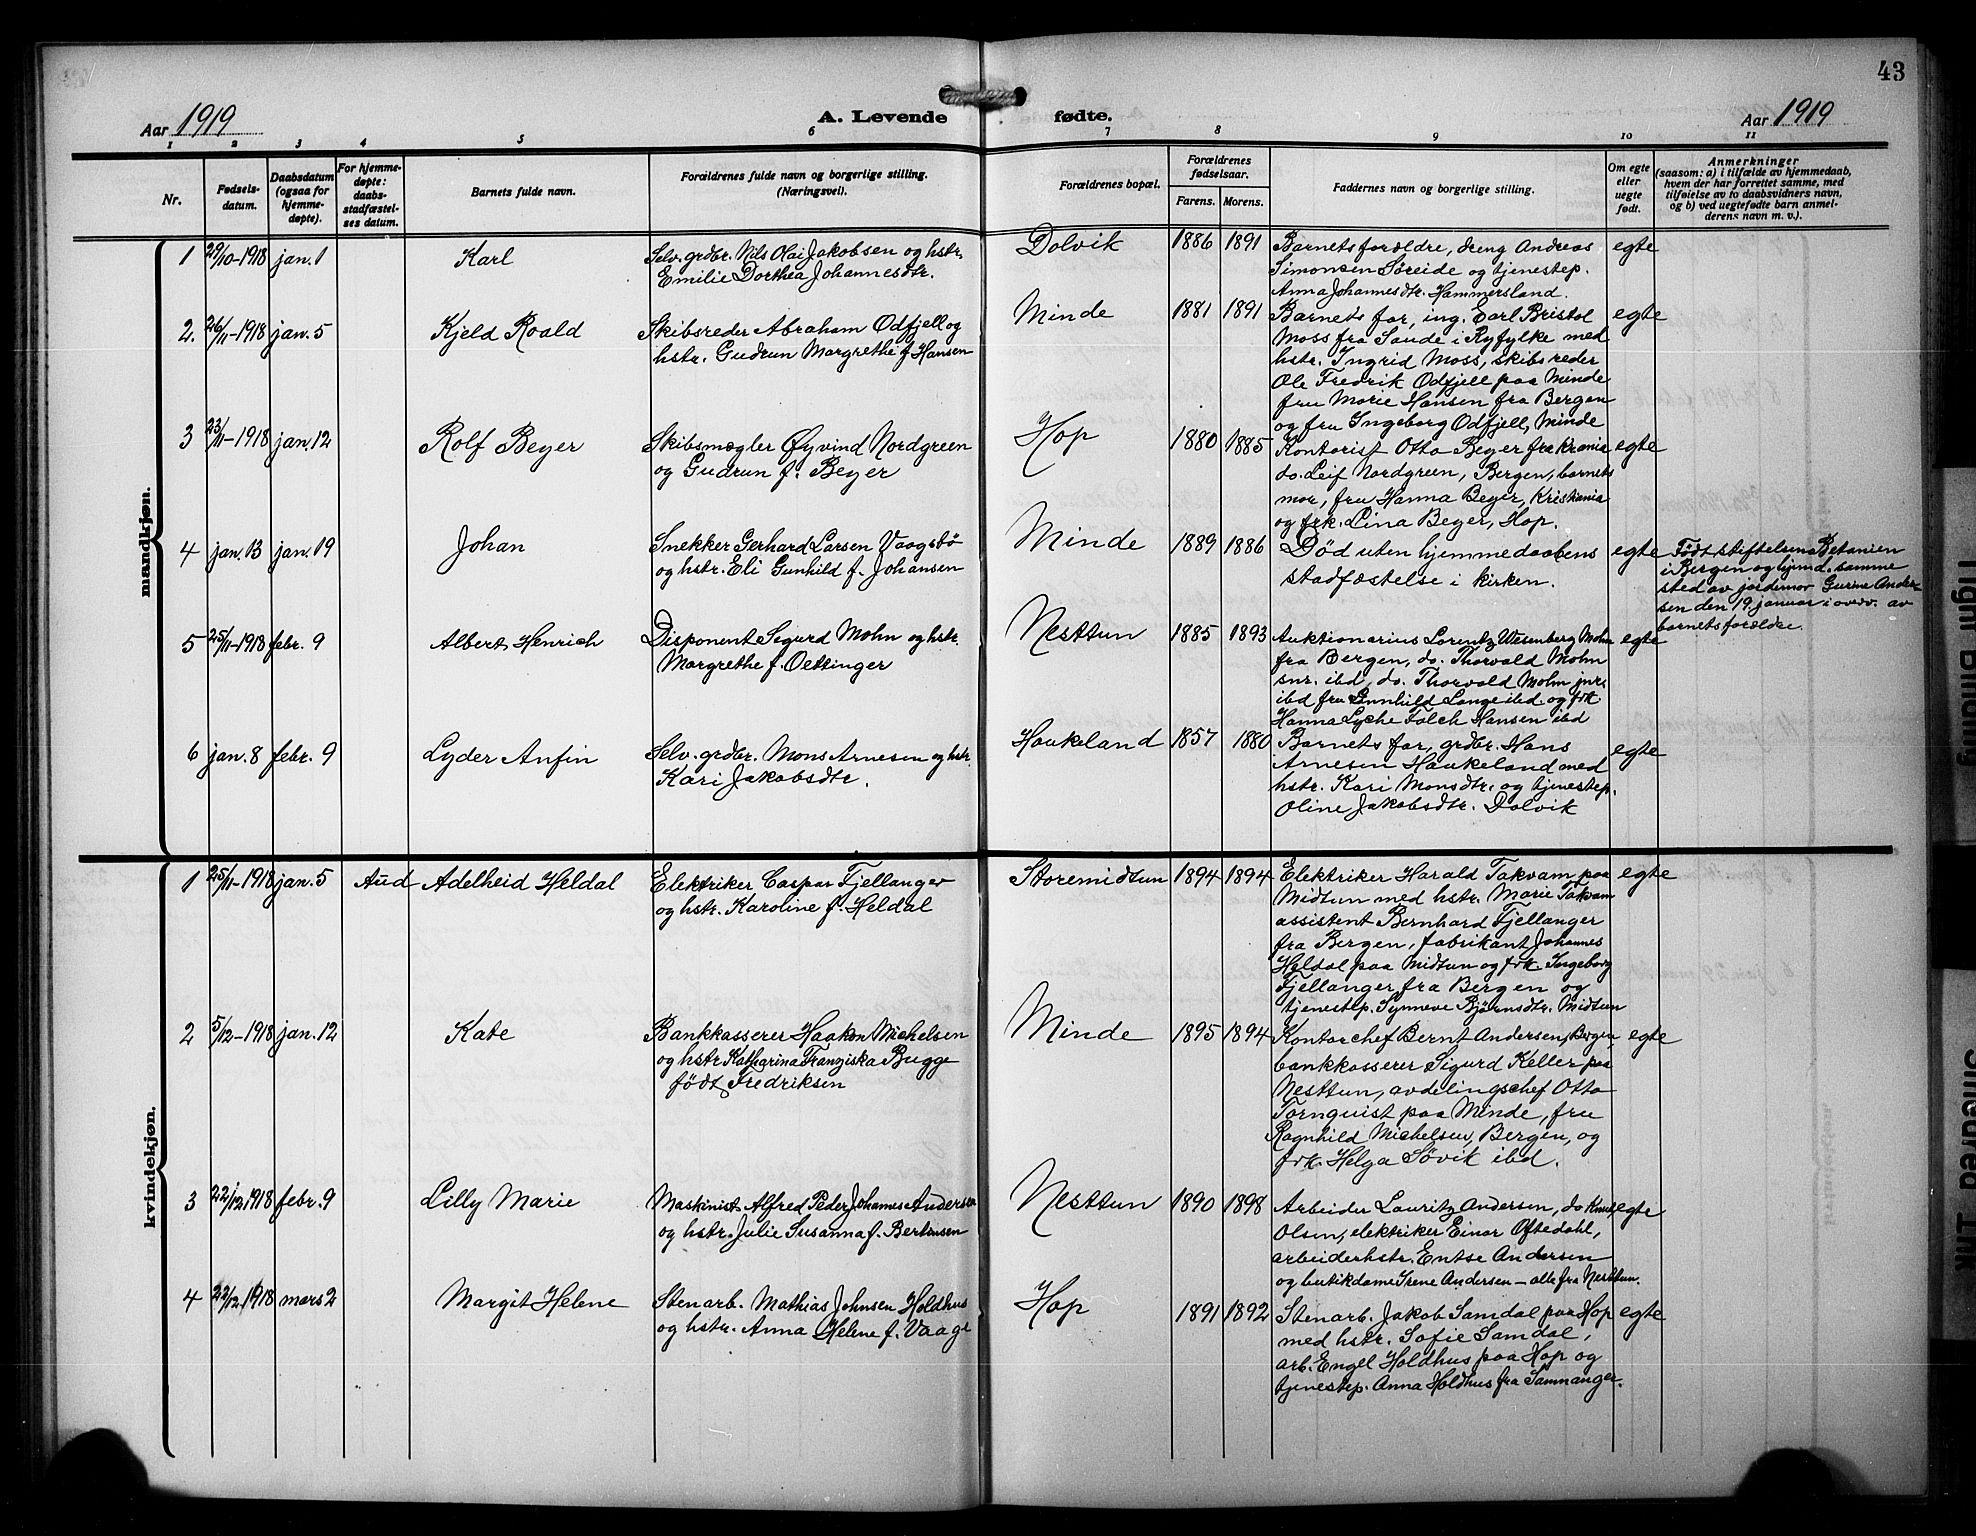 43
Aar 1919
A. Levende fødte.
Aar 1919
1 2 3 4 5 6 7 8 9 10 11
Nr.
Fødsels-
datum.
Daabsdatum
(ogsaa for
hjemme-
døpte).
For hjemme-
døpte:
daabs-
stadfæstel-
ses datum.
Barnets fulde navn.
Forældrenes fulde navn og borgerlige stilling.
(Næringsvei).
Forældrenes bopæl.
Forældrenes
fødselsaar.
Farens. Morens.
Faddernes navn og borgerlige stilling.
Om egte
eller
uegte
født.
Anmerkninger
(saasom: a) i tilfælde av hjemmedaab,
hvem der har forrettet samme, med
tilføielse av to daabsvidners navn,
og b) ved uegtefødte barn anmel-
derens navn m. v.).
mandkjøn.
1 29/10-1918 jan. 1 Karl
Selv. grdbr. Nils Olai Jakobsen og hstr.
Emilie Dorthea Johannesdtr.
Dolvik 1886 1891
Barnets forældre, dreng Andreas
Simonsen Søreide og tjenestep.
Anna Johannesdtr. Hammersland.
egte
2. 26/11-1918 jan. 5 Kjeld Roald
Skibsreder Abraham Odfjell og
hstr. Gudrun Margrethe f. Hansen
Minde 1881 1891
Barnets far, ing. Earl Bristol
Moss fra Saude i Ryfylke med
hstr. Ingrid Moss, skibsreder
Ole Fredrik Odfjell paa Minde
fru Marie Hansen fra Bergen
og fru Ingeborg Odfjell, Minde
egte
3 23/11-1918 jan. 12 Rolf Beyer
Skibsmægler Øyvind Nordgreen
og Gudrun f. Beyer
Hop 1880 1885
Kontorist Otto Beyer fra Krania
do. Leif Nordgreen, Bergen, barnets
mor, fru Hanna Beyer, Kristiania
og frk. Lina Beyer, Hop.
egte
4 jan. 13 jan. 19 Johan
Snekker Gerhard Larsen Vaagsbø
og hstr. Eli Gunhild f. Johansen
Minde 1889 1886
Død uten hjemmedaabens
stadfæstelse i kirken.
egte
Født stiftelsen Betanien
i Bergen og hjmd. samme
sted av jordemor Gurine Ander-
sen den 19. januar i overv. av
barnets forældre.
5 25/11-1918 febr. 9 Albert Henrich
Disponent Sigurd Mohn og hstr.
Margrethe f. Oettinger
Nesttun 1885 1893
Auktionarius Lorentz Wesenberg Mohn
fra Bergen, do. Thorvald Mohn
snr. ibd, do. Thorvald Mohn jnr.
ibd fru Gunnhild Lange ibd og frk
Hanna Lyche Falch Hansen ibd
egte
6 jan. 8 febr. 9 Lyder Anfin
Selv. grdbr. Mons Arnesen og hstr.
Kari Jakobsdtr.
Haukeland 1857 1880
Barnets far, grdbr. Hans
Arnesen Haukeland med
hstr. Kari Monsdtr. og tjenestep.
Oline Jakobsdtr. Dolvik
egte
kvindekjøn.
1 25/11-1918 jan. 5 Aud Adelheid Heldal
Elektriker Caspar Fjellanger
og hstr. Karoline f. Heldal
Storemidtun 1894 1894
Elektriker Harald Takvam paa
Midtun med hstr. Marie Takvam
assistent Bernhard Fjellanger
fra Bergen, fabrikant Johannes
Heldal paa Midtun og frk. Ingeborg
Fjellanger fra Bergen og
tjenestep. Synneve Bjørnsdtr. Midtun
egte
2 5/12-1918 jan. 12 Kate
Bankkasserer Haakon Michelsen
og hstr Katharina Franziska Bugge
født Fredriksen
Minde 1895 1894
Kontorchef Bernt Andersen, Bergen
bankkasserer Sigurd Keller paa
Nesttun, avdelingschef Otto
Tornquist paa Minde, fru
Ragnhild Michelsen, Bergen, og
frk. Helga Søvik ibd.
egte
3 22/12 1918 febr. 9 Lilly Marie
Maskinist Alfred Peder Johannes Andersen
og hstr. Julie Susanna f. Berntsen
Nesttun 1890 1898
Arbeider Lauritz Andersen, do Knut
Olsen, elektriker Einar Oftedahl,
arbeiderhstr. Entse Andersen
og butikdame Irene Andersen - alle fra Nesttun.
egte
4 22/12 1918 mars 2 Margit Helene
Stenarb. Mathias Johnsen Holdhus
og hstr. Anna Helene f. Vaage
Hop 1891 1892
Stenarb. Jakob Samdal paa Hop
med hstr. Sofie Samdal,
arb. Engel Holdhus paa Hop og
tjenestep. Anna Holdhus fra Samnanger.
egte
Tight Binding
Smeared Ink